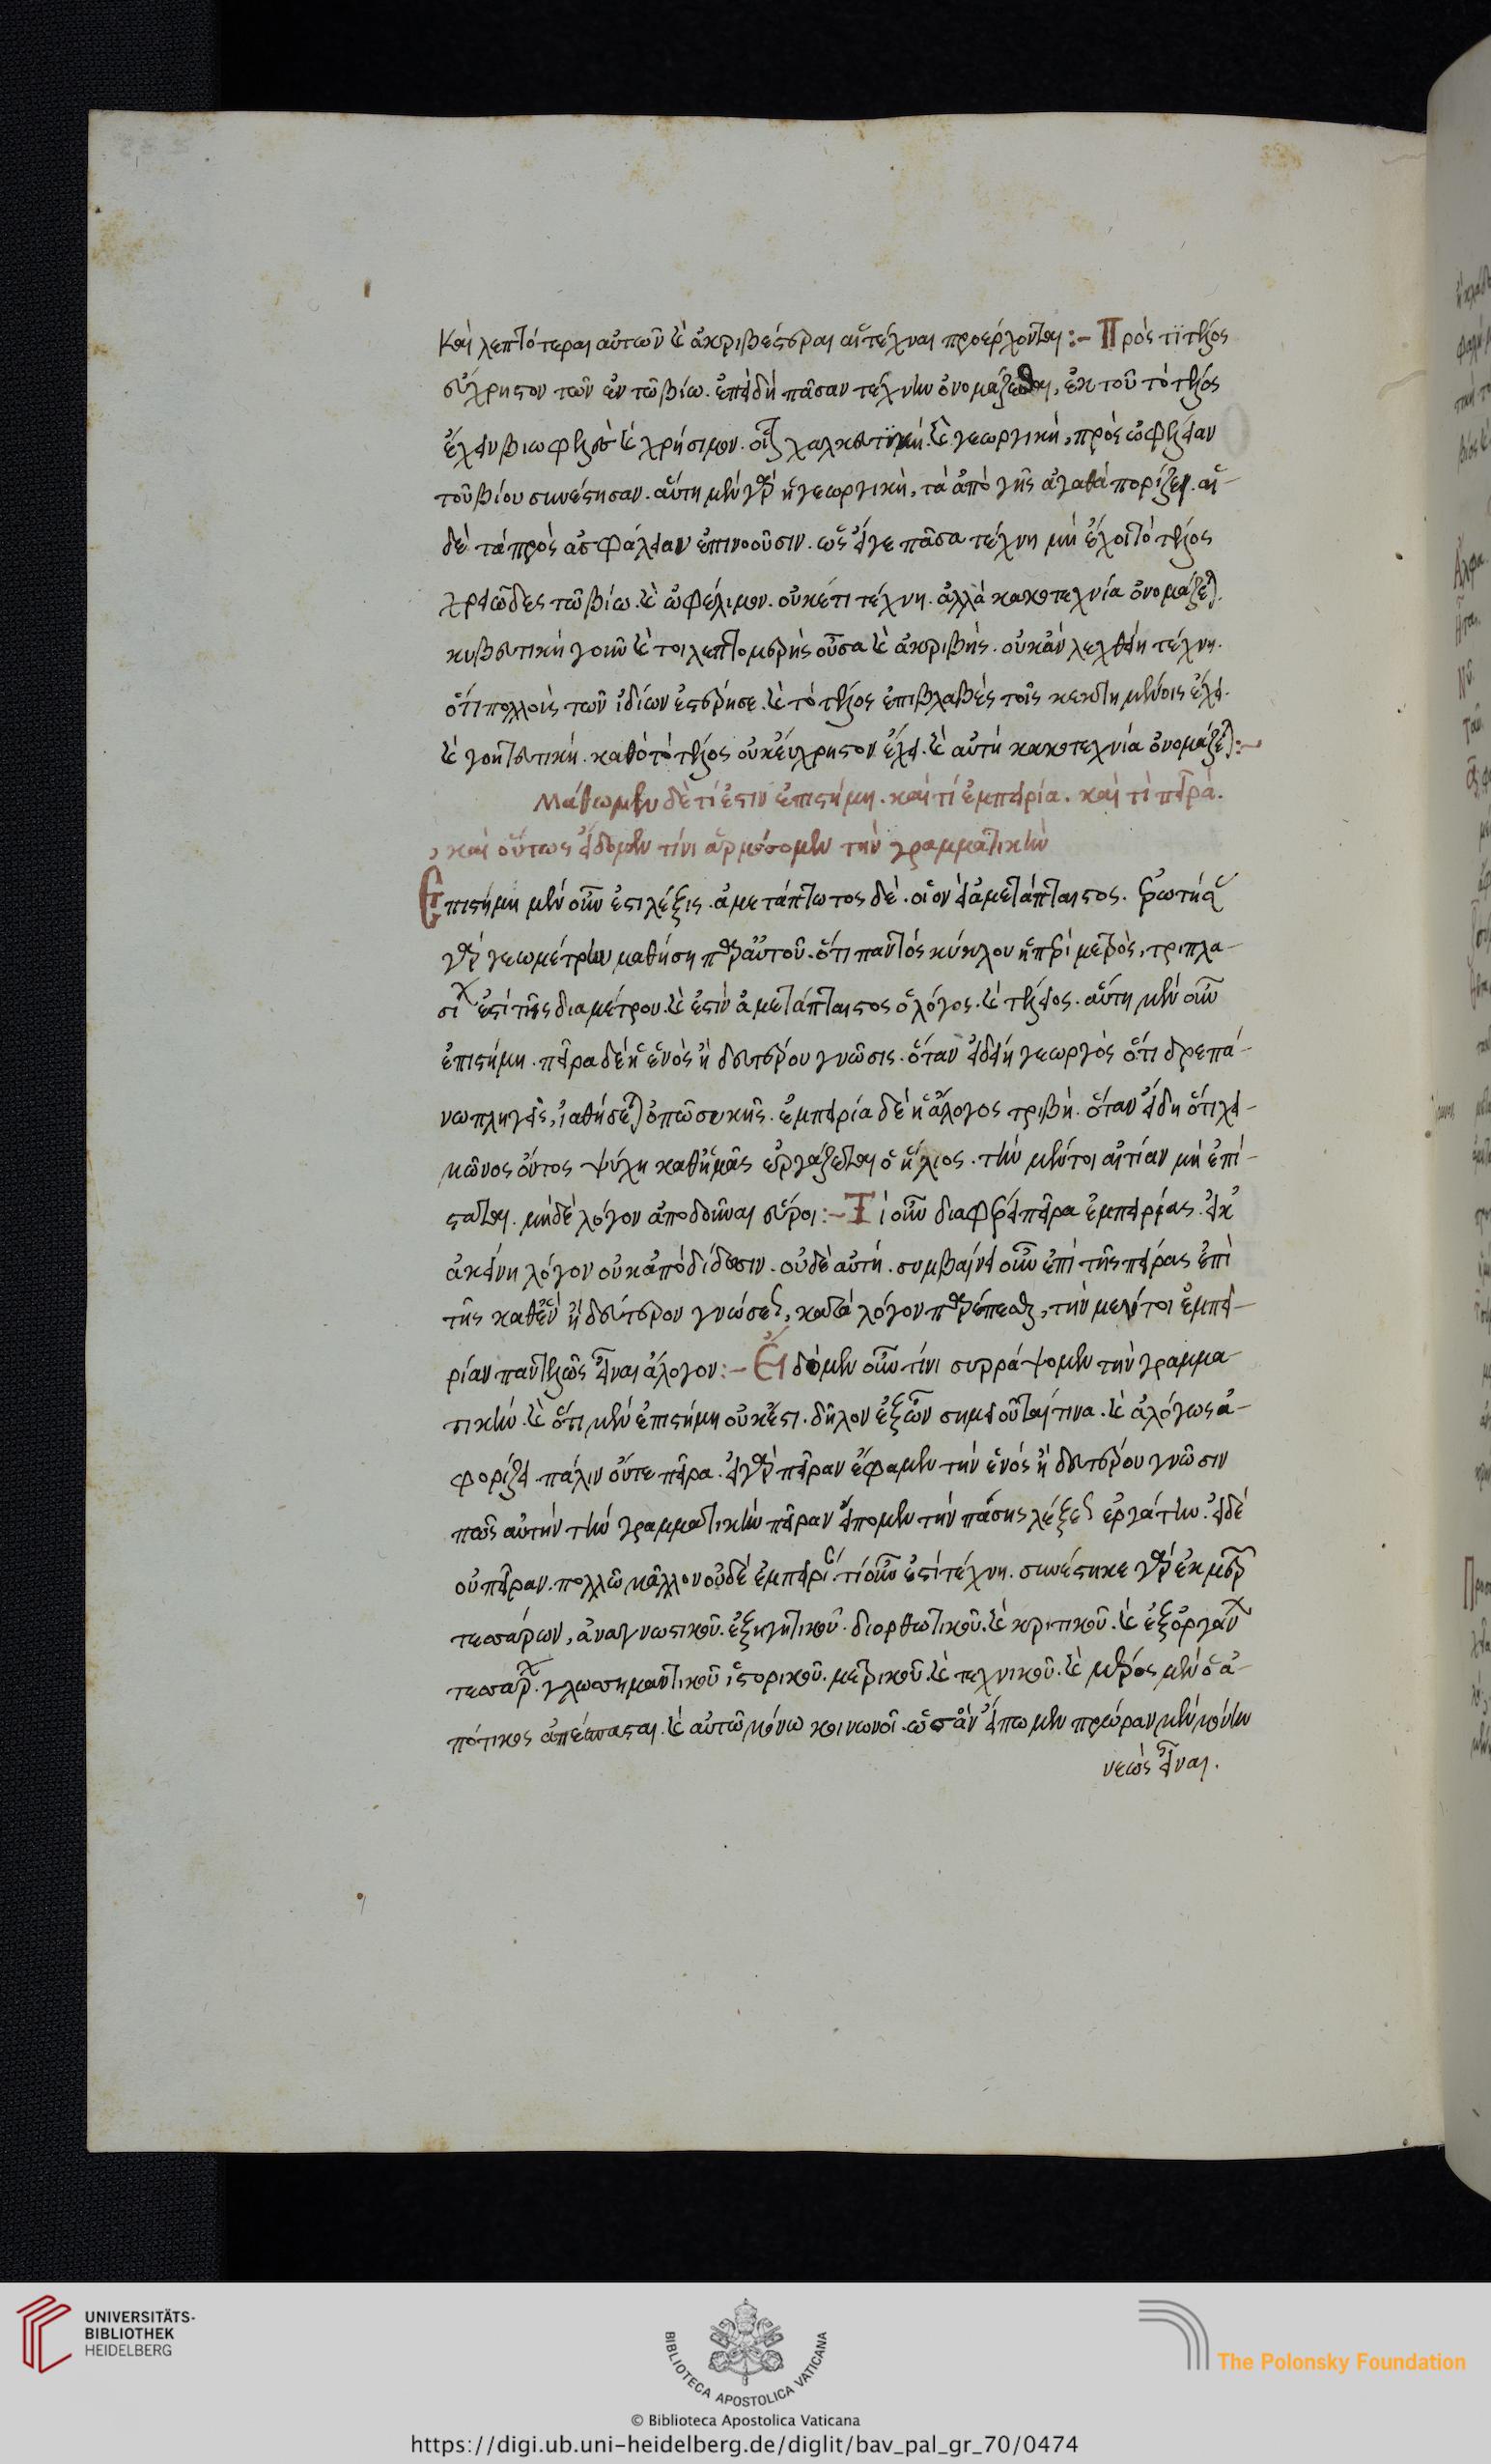 καὶ λεπτότεραι αὐτῶν καὶ ἀκριβέστεραι αἱ τέχναι προέρχονται :- Πρός τι τέλος
εὔχρηστον τῶν ἐν τῶ βίω. ἐπειδὴ πᾶσαν τέχνην ὀνομάζεσθαι, ἐκ τοῦ τὸ τέλος
ἔχειν βιωφελὲς καὶ χρήσιμον. χαλκευτικὴ καὶ γεωργικὴ, πρὸς ὠφέλειαν
τοῦ βίου συνέστησαν. αὕτη μὲν γὰρ ἡ γεωργικὴ, τὰ ἀπὸ γῆς ἀγαθὰ πορίζει. αἱ
δὲ τὰ πρὸς ἀσφάλειαν ἐπινοοῦσιν. ὡς εἴγε πᾶσα τέχνη μὴ ἔχοι τὸ τέλος
χρειῶδες τῶ βίω καὶ ὠφέλιμον. οὐκέτι τέχνη. ἀλλὰ κακοτεχνία ὀνομάζεται.
κυβευτικὴ γοῦν καὶ τοι λεπτομερὴς οὖσα καὶ ἀκριβὴς. οὐκ ἂν λεχθείη τέχνη.
ὅτι πολλοὺς τῶν ἰδίων ἐστέρησε. καὶ τὸ τέλος ἐπιβλαβὲς τοῖς κεκτημένοις ἔχει.
καὶ γοητευτικὴ. καθὸ τὸ τέλος οὐκ εὔχρηστον ἔχει. καὶ αὐτὴ κακοτεχνία ὀνομάζεται :-
Μάθωμεν δὲ τί ἐστιν ἐπιστήμη. καὶ τί ἐμπειρία. καὶ τί πεῖρα.
καὶ οὕτως εἴδομεν τίνι ἁρμόσομεν τὴν γραμματικὴν
Ἐπιστήμη μὲν οὖν ἐστι λέξις. ἀμετάπτωτος δὲ. οἷον εἰ ἀμετάπταιστος. ἐρωτήσας
γὰρ γεωμέτρην μαθήση παρ' αὐτοῦ. ὅτι παντὸς κύκλου ἡ περίμετρος, τριπλα-
ἐστὶ τῆς διαμέτρου. καὶ ἐστὶν ἀμετάπταιστος ὁ λόγος. καὶ τέλειος. αὕτη μὲν οὖν
ἐπιστήμη. πεῖρα δὲ ἡ ἑνὸς ἢ δευτέρου γνῶσις. ὅταν εἰδείη γεωργὸς ὅτι δρεπά-
νω πληγεὶς, ἰαθήσεται ὀπῶ συκῆς. ἐμπειρία δὲ ἡ ἄλογος τριβὴ. ὅταν εἴδη ὅτι χει-
μῶνος ὄντος ψύχη καθ' ἡμᾶς ἐργάζεται ὁ ἥλιος. τὴν μέντοι αἰτίαν μὴ ἐπί-
σταται. μηδὲ λόγον ἀποδοῦναι εὕροι :- Τί οὖν διαφέρει πεῖρα ἐμπειρίας.
λόγον οὐκ ἀποδίδωσιν. οὐδὲ αὐτὴ. συμβαίνει οὖν ἐπὶ τῆς πείρας ἐπὶ
τῆς καθ' ἓν ἢ δεύτερον γνώσεως, κατὰ λόγον παρέπεσθαι, τὴν μέντοι ἐμπει-
ρίαν παντελῶς εἶναι ἄλογον :- Εἴδομεν οὖν τίνι συρράψομεν τὴν γραμμα-
τικὴν. καὶ ὅτι μὲν ἐπιστήμη οὐκ ἔστι. δῆλον ἐξ ὧν σημειοῦταί τινα. καὶ ἀλόγως ἀ-
φορίζει. πάλιν οὔτε πεῖρα. εἰ γὰρ πεῖραν ἔφαμεν τὴν ἑνὸς ἢ δευτέρου γνῶσιν
πῶς αὐτὴν τὴν γραμματικὴν πεῖραν εἴπομεν τὴν πάσης λέξεως ἐργάτην. εἰ δὲ
οὐ πεῖραν. πολλῶ μᾶλλον οὐδὲ ἐμπειρία. τί οὖν ἐστὶ τέχνη. συνέστηκε γὰρ ἐκ μερῶν
τεσσάρων, ἀναγνωστικοῦ. ἐξηγητικοῦ. διορθωτικοῦ. καὶ κριτικοῦ. καὶ ἐξ ὀργάνων
τεσσάρων. γλωσσηματικοῦ ἱστορικοῦ. μετρικοῦ. καὶ τεχνικοῦ. καὶ μέρος μὲν ὁ ἀ-
πότικος ἀπέσπασται. καὶ αὐτῶ μόνω κοινωνοῖ. ὡς ἂν εἴπωμεν πρώραν μὲν μόνην
νεὼς εἶναι.
UNIVERSITÄTS-
BIBLIOTHEK
HEIDELBERG
BIBLIOTECA APOSTOLICA VATICANA
The Polonsky Foundation
© Biblioteca Apostolica Vaticana
https://digi.ub.uni-heidelberg.de/diglit/bav_pal_gr_70/0474